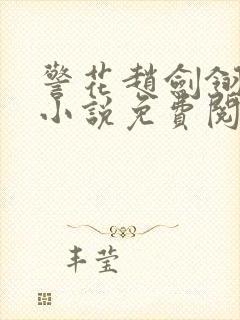 警花趙劍翎
小說免費閱
丰莹